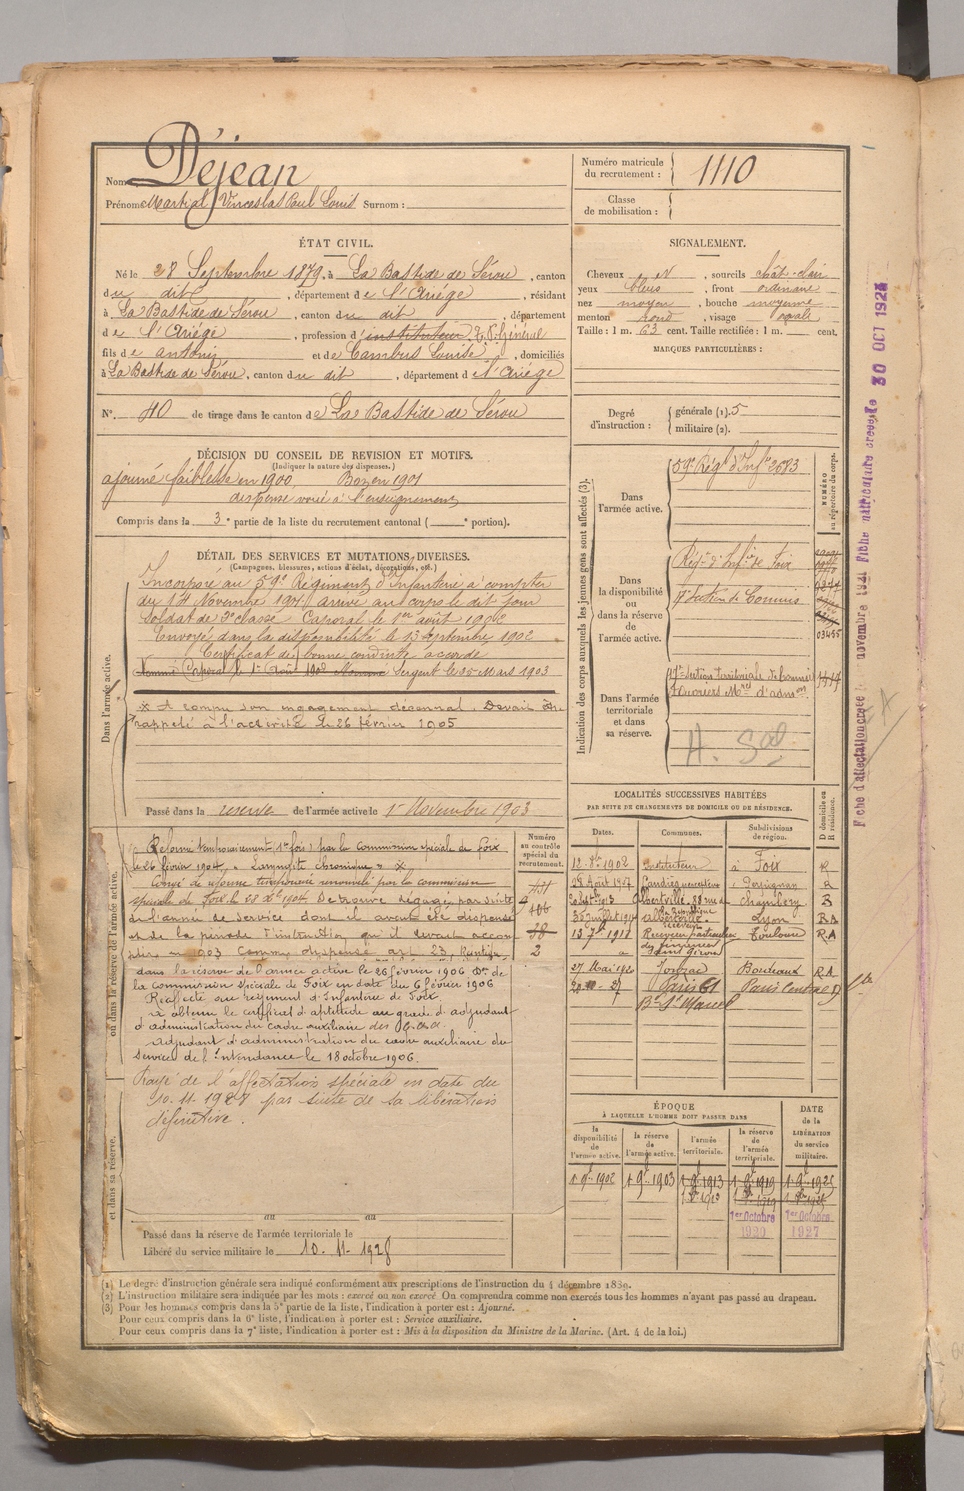 Nom Déjean
Prénoms Martial Vinceslas Paul Louis Surnom :
Numéro matricule du recrutement : 1110
Classe de mobilisation :
ÉTAT CIVIL.
Né le 28 Septembre 1879, à La Bastide de Sérou, canton
du dit, département de l'Ariège, résidant
à La Bastide de Sérou, canton du dit, département
de l'Ariège, profession d'instituteur
fils de Antonin et de Cambus Louise, domiciliés
à La Bastide de Sérou, canton du dit, département de l'Ariège
N°. 40 de tirage dans le canton de La Bastide de Sérou
SIGNALEMENT.
Cheveux, sourcils chât-clair
yeux bleus, front ordinaire
nez moyen, bouche moyenne
menton rond, visage ovale
Taille : 1 m. 63 cent. Taille rectifiée : 1 m. cent.
MARQUES PARTICULIÈRES :
Degré d'instruction : générale (1). 5
militaire (2).
DÉCISION DU CONSEIL DE REVISION ET MOTIFS.
(Indiquer la nature des dispenses.)
ajourné faiblesse en 1900. Bon en 1901
dispensé voué à l'enseignement
Compris dans la 3e partie de la liste du recrutement cantonal ( portion).
DÉTAIL DES SERVICES ET MUTATIONS DIVERSES.
(Campagnes, blessures, actions d'éclat, décorations, etc.)
Dans l'armée active.
Incorporé au 59e Régiment d'Infanterie à compter
du 14 Novembre 1901 arrivé au corps le dit jour
Soldat de 2e classe Caporal le 1er août 1902
Envoyé dans la disponibilité le 13 septembre 1902
Certificat de bonne conduite accordé
Sergent le 25 Mars 1903
* A rompu son engagement décennal. Devait être
rappelé à l'activité le 26 février 1905
Passé dans la réserve de l'armée active le 1er Novembre 1903
ou dans la réserve de l'armée active.
Réformé temporairement (1re fois) par la commission spéciale de Foix
le 26 février 1904, "Laryngite chronique" *
Congé de réforme temporaire renouvelé par la commission
spéciale de Foix le 1904. Se trouve dégagé par suite
de l'année de service dont il avait été dispensé
et de la période d'instruction qu'il devait accom
plir en 1903 comme dispensé art 23,
dans la réserve de l'armée active le 26 février 1906 Don de
la commission spéciale de Foix en date du 6 février 1906
Réaffecté au régiment d'Infanterie de Foix.
a obtenu le certificat d'aptitude au grade d'adjudant
d'administration du cadre auxiliaire des
adjudant d'administration du cadre auxiliaire du
Service de l'Intendance le 18 octobre 1906.
Rayé de l'affectation spéciale en date du
10.11.1928 par suite de sa libération
définitive.
et dans sa réserve.
au au
Passé dans la réserve de l'armée territoriale le
Libéré du service militaire le 10. 11. 1928
Numéro au contrôle spécial du recrutement.
38
2
Indication des corps auxquels les jeunes gens sont affectés (3).
NUMÉRO au répertoire du corps.
Dans l'armée active. 59e Régt d'Inf. 2683
Dans la disponibilité ou dans la réserve de l'armée active.
Régt d'Inf.ie de Foix
17e Section de Commis
03455
Dans l'armée territoriale et dans sa réserve.
17e Section territoriale de Commis
et Ouvriers Mres d'admon
Fiche d'affectation créée le novembre 1921 Fiche matriculaire créée le 30 OCT 1924
LOCALITÉS SUCCESSIVES HABITÉES
PAR SUITE DE CHANGEMENTS DE DOMICILE OU DE RÉSIDENCE.
Dates. Communes. Subdivisions de région. D domicile ou R résidence.
12 8bre 1902 instituteur à Foix R
28 Août 1907 Perpignan R
20 Septbre 1913 Albertville Chambéry R
juillet 1914 Albertville Lyon RA
1918 Receveur particulier des finances Saint Girons Toulouse R.A
27 Mai 1920 Jonzac Bordeaux RA
Paris Bd St Marcel Paris Central
ÉPOQUE
À LAQUELLE L'HOMME DOIT PASSER DANS
DATE de la LIBÉRATION du service militaire.
la disponibilité de l'armée active. la réserve de l'armée active. l'armée territoriale. la réserve de l'armée territoriale.
1 9bre 1902 1 9bre 1903 1 9bre 1913 1 9bre 1919 1 9bre 1925
1er Octobre 1920 1er Octobre 1927
(1) Le degré d'instruction générale sera indiqué conformément aux prescriptions de l'instruction du 4 décembre 1889.
(2) L'instruction militaire sera indiquée par les mots : exercé ou non exercé. On comprendra comme non exercés tous les hommes n'ayant pas passé au drapeau.
(3) Pour les hommes compris dans la 5e partie de la liste, l'indication à porter est : Ajourné.
Pour ceux compris dans la 6e liste, l'indication à porter est : Service auxiliaire.
Pour ceux compris dans la 7e liste, l'indication à porter est : Mis à la disposition du Ministre de la Marine. (Art. 4 de la loi.)